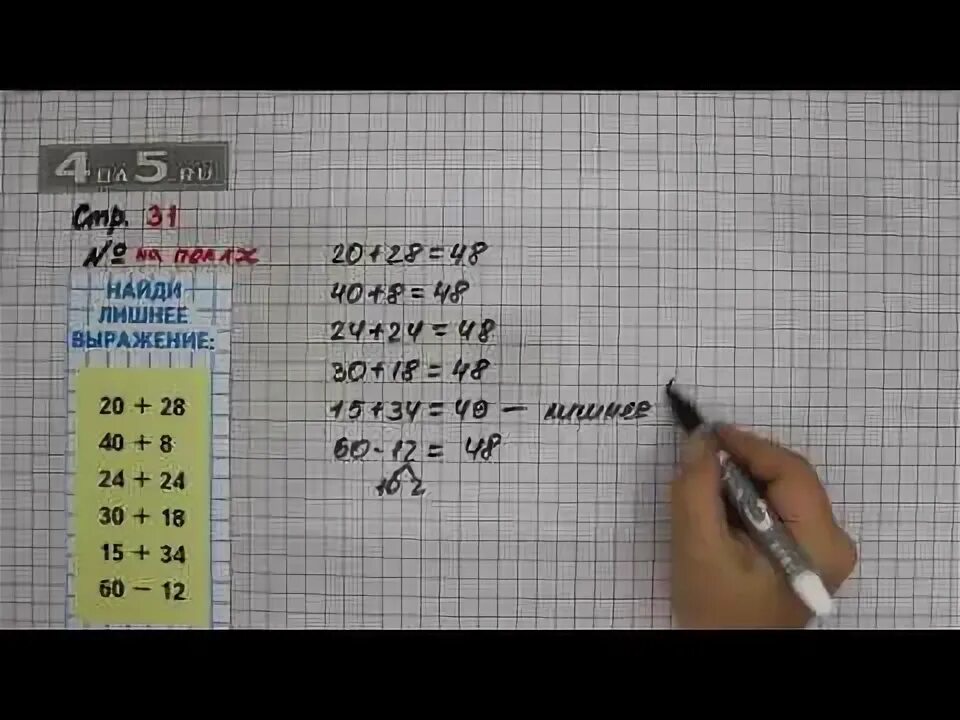 4 на 5.RU
Стр. 31
№ на полях
НАЙДИ
ЛИШНЕЕ
ВЫРАЖЕНИЕ:
20 + 28
40 + 8
24 + 24
30 + 18
15 + 34
60 − 12
20+28=48
40+8=48
24+24=48
30+18=48
15+34=49 — лишнее
60-12= 48
10 2